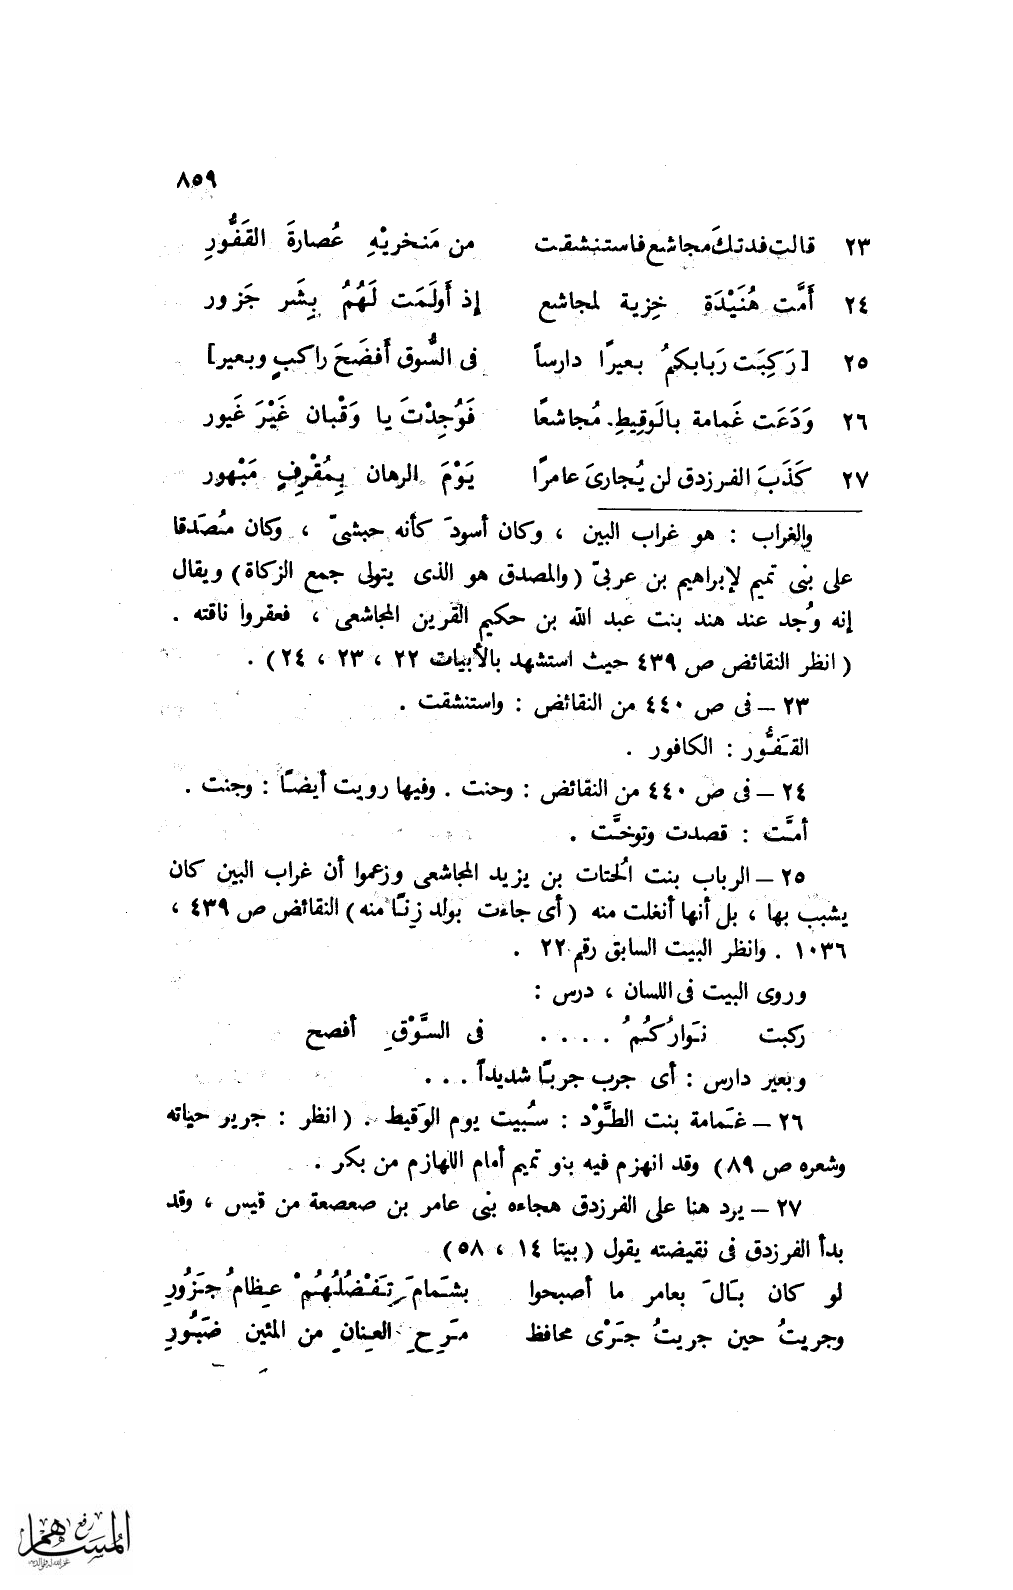 ٨٥٩
٢٣ قالت فدتك مجاشع فاستنشقت من مَنخريْهِ عُصارةَ القَفُّورِ
٢٤ أَمَّت هُنَيْدَة خِزية لمجاشع إذ أَولَمَت لَهُمُ بِشَر جَزور
٢٥ [رَكِبَت رَبابكمُ بعيرًا دارساً فى السُّوق أَفضَحَ راكبٍ وبعير]
٢٦ وَدَعَت غَمامة بالوَقِيطِ مُجاشعًا فَوُجِدْتَ يا وَقْبان غَيْرَ غَيور
٢٧ كَذَبَ الفرزدق لن يُجارىَ عامرًا يَوْمَ الرهان بِمُقْرِفٍ مَبْهور
والغراب : هو غراب البين ، وكان أسودَ كأنه حبشىّ ، وكان مُصَدقا
على بنى تميم لإبراهيم بن عربىّ (والمصدق هو الذى يتولى جمع الزكاة) ويقال
إنه وُجد عند هند بنت عبد الله بن حكيم القرين المجاشعى ، فعقروا ناقته .
(انظر النقائض ص ٤٣٩ حيث استشهد بالأبيات ٢٢ ، ٢٣ ، ٢٤) .
٢٣ – فى ص ٤٤٠ من النقائض : واستنشقت .
القَفُّور : الكافور .
٢٤ – فى ص ٤٤٠ من النقائض : وحنت . وفيها رويت أيضًا : وجنت .
أمَّت : قصدت وتوخَّت .
٢٥ – الرباب بنت الحُتات بن يزيد المجاشعى وزعموا أن غراب البين كان
يشبب بها ، بل أنها أنغلت منه (أى جاءت بولد زنًا منه) النقائض ص ٤٣٩ ،
١٠٣٦ . وانظر البيت السابق رقم ٢٢ .
وروى البيت فى اللسان ، درس :
ركبت نَوارُكُمُ . . . . فى السَّوْقِ أفصح
وبعير دارس : أى جرب جربًا شديداً . . .
٢٦ – غَمامة بنت الطَّوْد : سُبيت يوم الوَقيط . (انظر : جرير حياته
وشعره ص ٨٩) وقد انهزم فيه بنو تميم أمام اللهازم من بكر .
٢٧ – يرد هنا على الفرزدق هجاءه بنى عامر بن صعصعة من قيس ، وقد
بدأ الفرزدق فى نقيضته يقول (بيتا ١٤ ، ٥٨)
لو كان بَالَ بعامر ما أصبحوا بشَمامَ تَفْضُلُهُمْ عِظامُ جَزُورِ
وجريتُ حين جريتُ جَرْى محافظ مَرِحِ العِنانِ من المئين ضَبُورِ